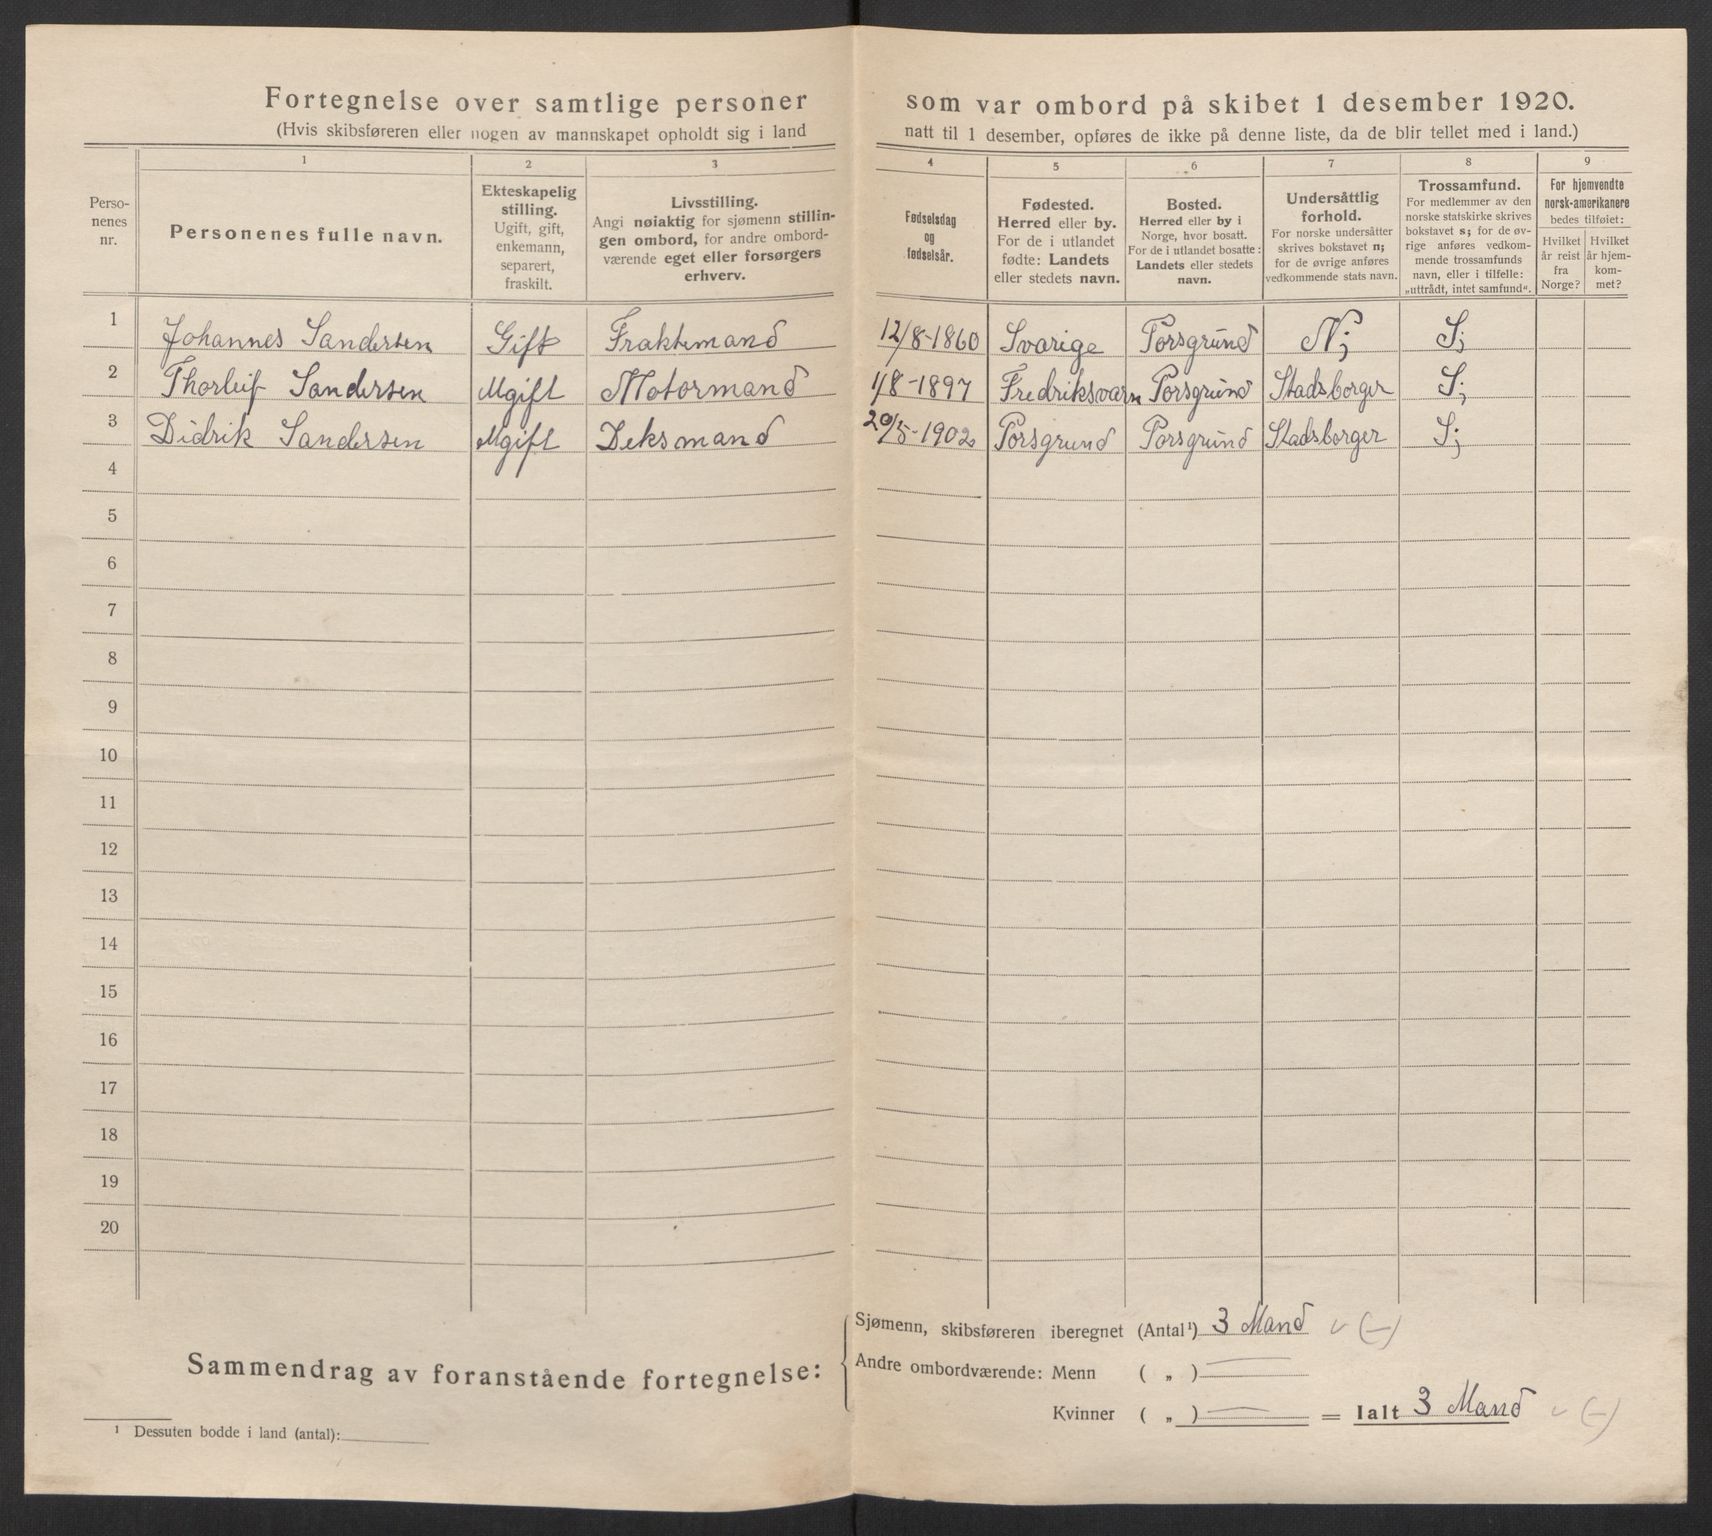 Fortegnelse over samtlige personer som var ombord på skibet 1 desember 1920.
(Hvis skibsføreren eller nogen av mannskapet opholdt sig i land natt til 1 desember, opføres de ikke på denne liste, da de blir tellet med i land.)
1 2 3 4 5 6 7 8 9
Perso-
nenes
nr.
Personenes fulle navn.
Ekteskapelig
stilling.
Ugift, gift,
enkemann,
separert,
fraskilt.
Livsstilling.
Angi nøiaktig for sjømenn stillin-
gen ombord, for andre ombord-
værende eget eller forsørgers
erhverv.
Fødselsdag
og
fødselsår.
Fødested.
Herred eller by.
For de i utlandet
fødte: Landets
eller stedets navn.
Bosted.
Herred eller by i
Norge, hvor bosatt.
For de i utlandet bosatte:
Landets eller stedets
navn.
Undersåttlig
forhold.
For norske undersåtter
skrives bokstavet n;
for de øvrige anføres
vedkommende stats navn.
Trossamfund.
For medlemmer av den
norske statskirke skrives
bokstavet s; for de øv-
rige anføres vedkom-
mende trossamfunds
navn, eller i tilfelle:
„uttrådt, intet samfund“.
For hjemvendte
norsk-amerikanere
bedes tilføiet:
Hvilket
år reist
fra
Norge?
Hvilket
år hjem-
kom-
met?
1 Johannes Sandersen Gift Fraktemand 12/8-1860 Svarige Porsgrund N; S;
2 Thorleif Sandersen Ugift Motormand 1/8-1897 Fredriksvarn Porsgrund Stadsborger S;
3 Didrik Sandersen Ugift Deksmand 29/5-1902 Porsgrund Porsgrund Stadsborger S;
4
5
6
7
8
9
10
11
12
13
14
15
16
17
18
19
20
Sammendrag av foranstående fortegnelse:
Sjømenn, skibsføreren iberegnet (Antal¹) 3 Mand v (—)
Andre ombordværende: Menn ( „ ) —
Kvinner ( „ ) — = Ialt 3 Mand v (—)
¹ Dessuten bodde i land (antal):